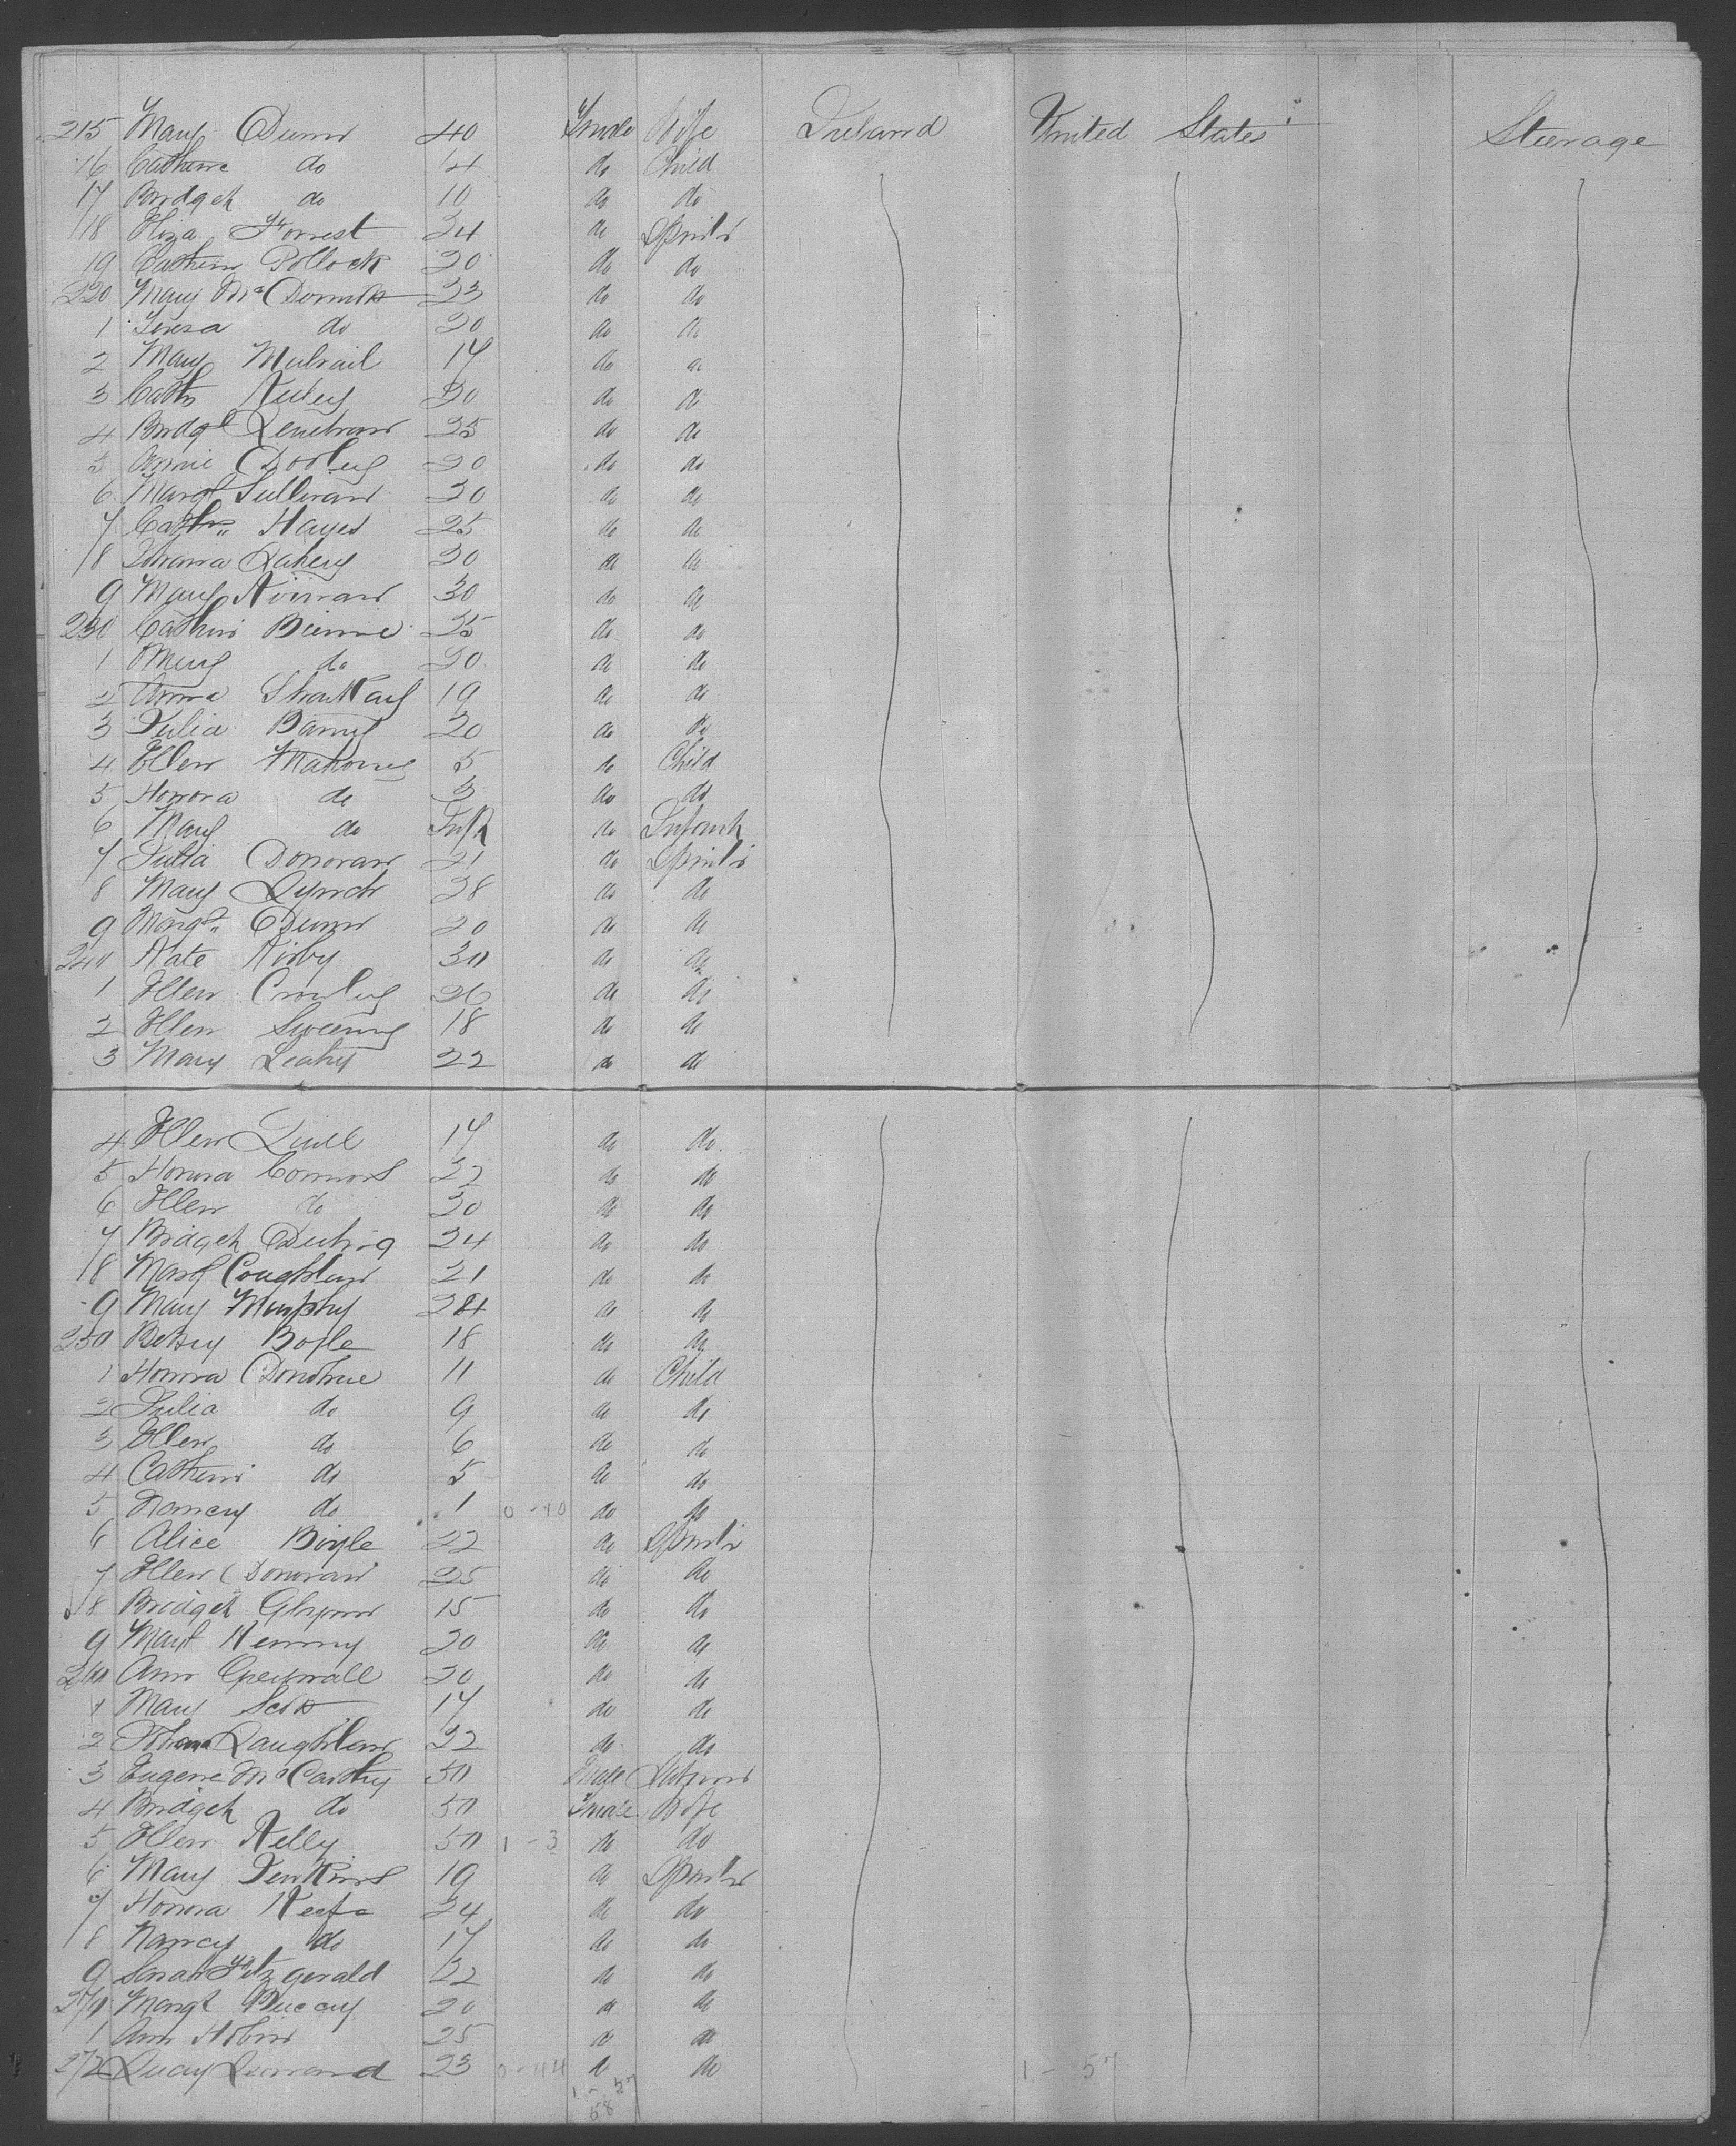 215 Mary Dunn 40 Female Wife Ireland United States Steerage
16 Catherine do 14 do Child
17 Bridget do 10 do do
18 Eliza Forrest 24 do Spinstr
19 Cathern Pollock 20 do do
220 Mary McDermott 23 do do
1 Teresa do 20 do do
2 Mary 17 do do
3 Cath 20 do do
4 Bridgt 25 do do
5 Annie Dooley 20 do do
6 Margt Sullivan 20 do do
7 Cathn Hayes 25 do do
18 Johanna Lahey 20 do do
9 Mary 30 do do
230 Cathern 25 do do
1 Mary do 20 do do
2 Anna 19 do do
3 Julia Barry 20 do do
4 Ellen Mahoney 5 do Child
5 Honora do 3 do do
6 Mary do Inft do Infant
7 Julia Donovan 21 do Spinstr
8 Mary Lynch 28 do do
9 Margt Dunn 20 do do
240 Kate Kirby 30 do do
1 Ellen Crowley 26 do do
2 Ellen Sweeney 18 do do
3 Mary Leahy 22 do do
4 Ellen 17 do do
5 Honora Connors 22 do do
6 Ellen do 20 do do
7 Bridget 24 do do
18 Margt Coughlan 21 do do
9 Mary Murphy 24 do do
250 Betsey Boyle 18 do do
1 Honora Donohue 11 do Child
2 Julia do 9 do do
3 Ellen do 6 do do
4 Cathern do 5 do do
5 Nancy do 1 0-40 do do
6 Alice Boyle 22 do Spinstr
7 Ellen Donovan 25 do do
18 Bridget Glynn 15 do do
9 Mart Kenny 20 do do
260 Ann 20 do do
1 Mary Scott 17 do do
2 Johana Laughlan 22 do do
3 Eugene McCarthy 50 Male
4 Bridget do 50 Female Wife
5 Ellen Kelly 50 1-3 do do
6 Mary Jenkins 19 do Spinstr
7 Honora Keefe 24 do do
18 Nancy do 17 do do
9 Sarah Fitzgerald 22 do do
270 Margt 20 do do
1 Ann 25 do do
272 23 0-44 do do
1-57
58
1-57